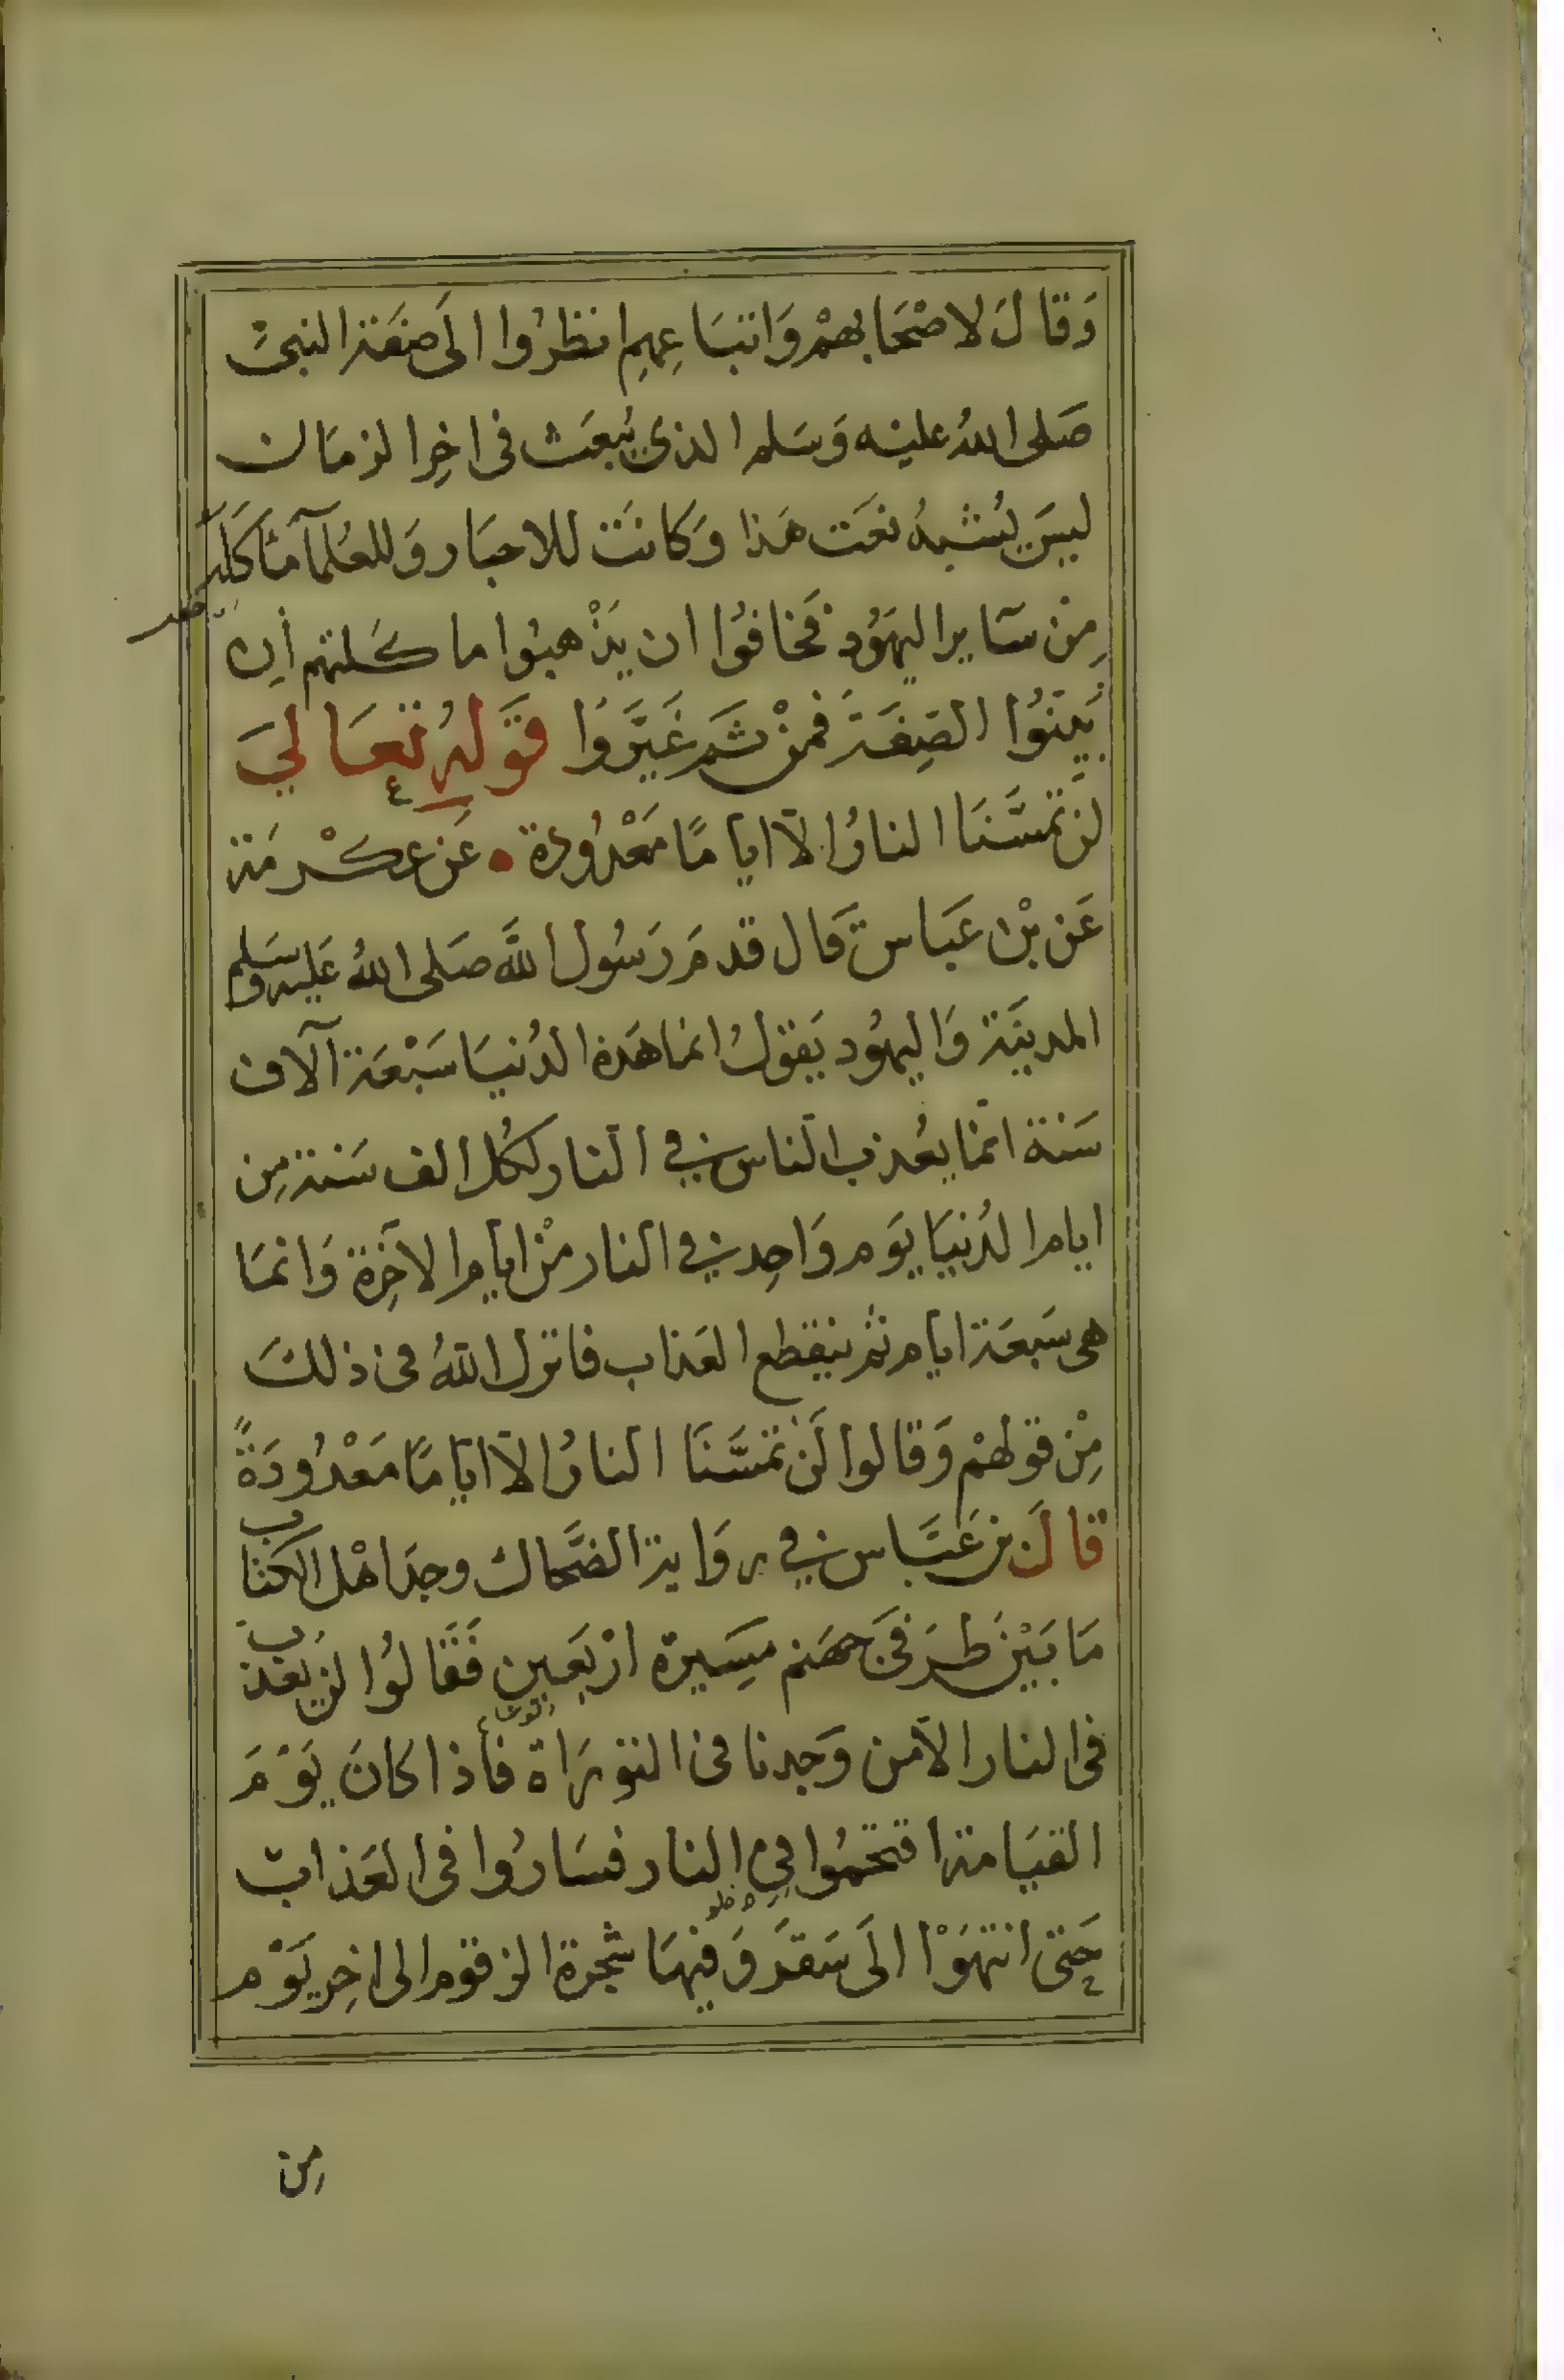 وَقَالَ لاصْحَابهمْ وَاتبَاعِهِم انظرُوا الَى صفَة النبىّ
صَلى اللهُ عليْه وَسَلم الذى يُبعَث فى اخِر الزمَان
ليسَ يُشبهُ نعَت هَذا وَكانَت للاحبَار وَللعُلمَآ مَأكلَة
مِنْ سَاير اليهَوُد فَخافوُا ان يَذْهبُوا ماكلتهم اِن
بَينوُا الصِفَةَ فمنْ ثَم غَيَّروَُا قَولهُ تعَالىَ
لَن تمسَّنَا النارُ الآ ايامًا مَعْدُودة عَن عِكْرمَة
عَن بْن عَبَاس قَال قدمَ رَسُول اللَّه صَلى اللهُ عَليه وسَلم
المدينَة وَاليهُود يَقولُ انما هَذه الدُنيَا سَبْعَة آلاف
سَنة انمّا يعُذب الناس في النار لكُل الف سَنة مِن
ايام الدُنيَا يَوم وَاحِد في النار منْ ايام الاخَِرة وَانمَا
هى سَبعَة ايام ثم ينقطع العَذاب فانزل اللهُ فى ذلكَ
مِنْ قولهْم وَقالوا لَن تمسَّنَا النارُ الآ ايامًا مَعْدُودَةً
قالَ بن عَبَّاس في روَاية الضَّحاك وجدَ اهْل الكتاب
مَا بَيْنَ طرَفىَ جهَنم مَسِيرة ارْبَعِين فقَالوُا لن يعَذب
فى النار الآ من وَجدنا فى التورَاة فأذا كانَ يَوْمَ
القيَامة اقتحمُوا فِي النار فسَارُوا فى العَذاب
حَتى انتهَوْا الَى سَقَر وَفيهَا شجرة الزقوم الى اخِر يَوْم
مِن